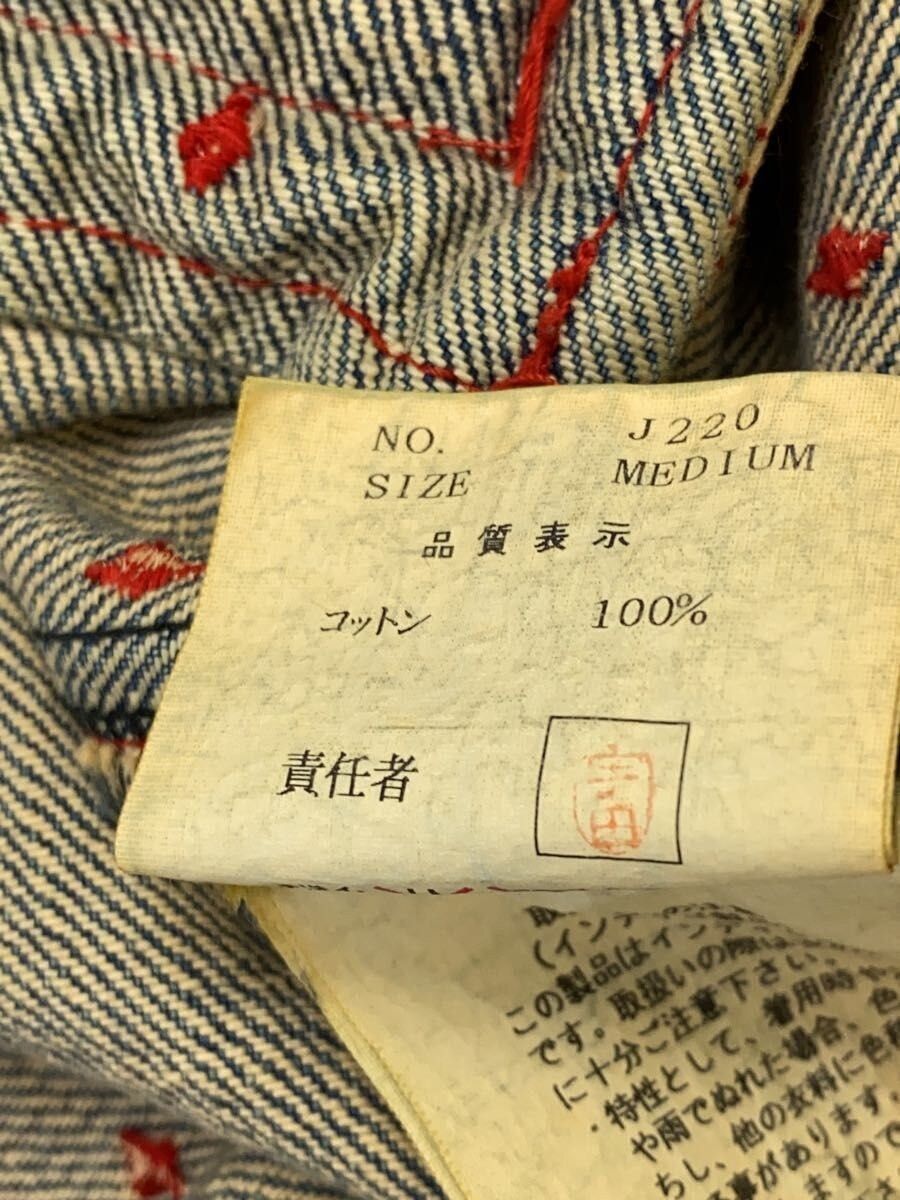 NO. J220
SIZE MEDIUM
品質表示
コットン 100%
責任者
取
(インディ
この製品はインディ
です。取扱いの際は
に十分ご注意下さい。
・特性として、着用時や
や雨でぬれた場合、色
ちし、他の衣料に色移
があります。
ますので